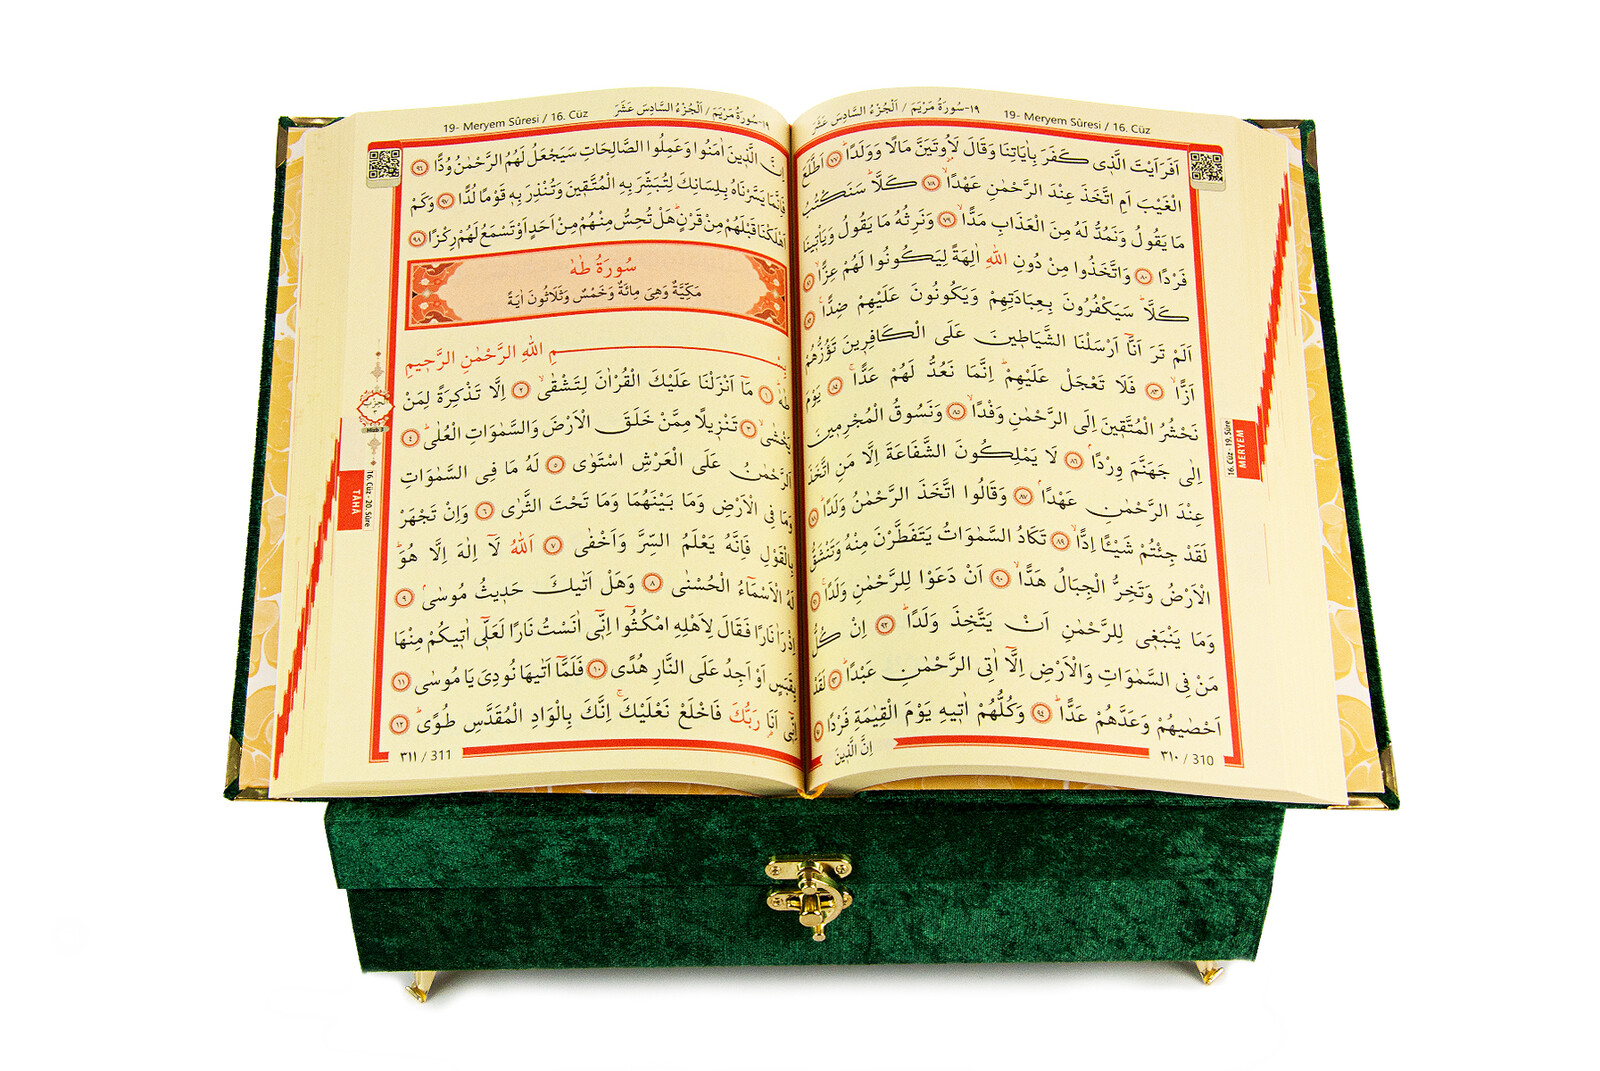 ١٩-سُورَةُ مَرْيَمَ / اَلْجُزْءُ السَّادِسَ عَشَرَ 19- Meryem Sûresi / 16. Cüz
اَفَرَاَيْتَ الَّذ۪ى كَفَرَ بِاٰيَاتِنَا وَقَالَ لَاُوتَيَنَّ مَالًا وَوَلَدًاۜ ﴿٧٧﴾ اَطَّلَعَ
الْغَيْبَ اَمِ اتَّخَذَ عِنْدَ الرَّحْمٰنِ عَهْدًاۙ ﴿٧٨﴾ كَلَّاۜ سَنَكْتُبُ
مَا يَقُولُ وَنَمُدُّ لَهُ مِنَ الْعَذَابِ مَدًّاۙ ﴿٧٩﴾ وَنَرِثُهُ مَا يَقُولُ وَيَأْت۪ينَا
فَرْدًا ﴿٨٠﴾ وَاتَّخَذُوا مِنْ دُونِ اللّٰهِ اٰلِهَةً لِيَكُونُوا لَهُمْ عِزًّاۙ ﴿٨١﴾
كَلَّاۜ سَيَكْفُرُونَ بِعِبَادَتِهِمْ وَيَكُونُونَ عَلَيْهِمْ ضِدًّا۟ ﴿٨٢﴾
اَلَمْ تَرَ اَنَّٓا اَرْسَلْنَا الشَّيَاط۪ينَ عَلَى الْكَافِر۪ينَ تَؤُزُّهُمْ
اَزًّاۙ ﴿٨٣﴾ فَلَا تَعْجَلْ عَلَيْهِمْۜ اِنَّمَا نَعُدُّ لَهُمْ عَدًّاۚ ﴿٨٤﴾ يَوْمَ
نَحْشُرُ الْمُتَّق۪ينَ اِلَى الرَّحْمٰنِ وَفْدًاۙ ﴿٨٥﴾ وَنَسُوقُ الْمُجْرِم۪ينَ
اِلٰى جَهَنَّمَ وِرْدًاۢ ﴿٨٦﴾ لَا يَمْلِكُونَ الشَّفَاعَةَ اِلَّا مَنِ اتَّخَذَ
عِنْدَ الرَّحْمٰنِ عَهْدًاۢ ﴿٨٧﴾ وَقَالُوا اتَّخَذَ الرَّحْمٰنُ وَلَدًاۜ ﴿٨٨﴾
لَقَدْ جِئْتُمْ شَيْـًٔا اِدًّاۙ ﴿٨٩﴾ تَكَادُ السَّمٰوَاتُ يَتَفَطَّرْنَ مِنْهُ وَتَنْشَقُّ
الْاَرْضُ وَتَخِرُّ الْجِبَالُ هَدًّاۙ ﴿٩٠﴾ اَنْ دَعَوْا لِلرَّحْمٰنِ وَلَدًاۚ ﴿٩١﴾
وَمَا يَنْبَغ۪ى لِلرَّحْمٰنِ اَنْ يَتَّخِذَ وَلَدًاۜ ﴿٩٢﴾ اِنْ كُلُّ
مَنْ فِى السَّمٰوَاتِ وَالْاَرْضِ اِلَّٓا اٰتِى الرَّحْمٰنِ عَبْدًاۜ ﴿٩٣﴾ لَقَدْ
اَحْصٰيهُمْ وَعَدَّهُمْ عَدًّاۜ ﴿٩٤﴾ وَكُلُّهُمْ اٰت۪يهِ يَوْمَ الْقِيٰمَةِ فَرْدًا ﴿٩٥﴾
اِنَّ الَّذ۪ينَ
٣١٠ / 310
16. Cüz - 19. Sûre
MERYEM
١٩-سُورَةُ مَرْيَمَ / اَلْجُزْءُ السَّادِسَ عَشَرَ 19- Meryem Sûresi / 16. Cüz
اِنَّ الَّذ۪ينَ اٰمَنُوا وَعَمِلُوا الصَّالِحَاتِ سَيَجْعَلُ لَهُمُ الرَّحْمٰنُ وُدًّا ﴿٩٦﴾
فَاِنَّمَا يَسَّرْنَاهُ بِلِسَانِكَ لِتُبَشِّرَ بِهِ الْمُتَّق۪ينَ وَتُنْذِرَ بِه۪ قَوْمًا لُدًّا ﴿٩٧﴾ وَكَمْ
اَهْلَكْنَا قَبْلَهُمْ مِنْ قَرْنٍۜ هَلْ تُحِسُّ مِنْهُمْ مِنْ اَحَدٍ اَوْ تَسْمَعُ لَهُمْ رِكْزًا ﴿٩٨﴾
سُورَةُ طٰهٰ
مَكِّيَّةٌ وَهِىَ مِائَةٌ وَخَمْسٌ وَثَلَاثُونَ اٰيَةً
بِسْمِ اللّٰهِ الرَّحْمٰنِ الرَّح۪يمِ
طٰهٰۜ ﴿١﴾ مَٓا اَنْزَلْنَا عَلَيْكَ الْقُرْاٰنَ لِتَشْقٰىۙ ﴿٢﴾ اِلَّا تَذْكِرَةً لِمَنْ
يَخْشٰىۙ ﴿٣﴾ تَنْز۪يلًا مِمَّنْ خَلَقَ الْاَرْضَ وَالسَّمٰوَاتِ الْعُلٰىۜ ﴿٤﴾
اَلرَّحْمٰنُ عَلَى الْعَرْشِ اسْتَوٰى ﴿٥﴾ لَهُ مَا فِى السَّمٰوَاتِ
وَمَا فِى الْاَرْضِ وَمَا بَيْنَهُمَا وَمَا تَحْتَ الثَّرٰى ﴿٦﴾ وَاِنْ تَجْهَرْ
بِالْقَوْلِ فَاِنَّهُ يَعْلَمُ السِّرَّ وَاَخْفٰى ﴿٧﴾ اَللّٰهُ لَٓا اِلٰهَ اِلَّا هُوَۜ
لَهُ الْاَسْمَٓاءُ الْحُسْنٰى ﴿٨﴾ وَهَلْ اَتٰيكَ حَد۪يثُ مُوسٰىۢ ﴿٩﴾
اِذْ رَاٰ نَارًا فَقَالَ لِاَهْلِهِ امْكُثُٓوا اِنّ۪ٓى اٰنَسْتُ نَارًا لَعَلّ۪ٓى اٰت۪يكُمْ مِنْهَا
بِقَبَسٍ اَوْ اَجِدُ عَلَى النَّارِ هُدًى ﴿١٠﴾ فَلَمَّٓا اَتٰيهَا نُودِىَ يَا مُوسٰى ﴿١١﴾
اِنّ۪ٓى اَنَا۬ رَبُّكَ فَاخْلَعْ نَعْلَيْكَۚ اِنَّكَ بِالْوَادِ الْمُقَدَّسِ طُوًىۜ ﴿١٢﴾
٣١١ / 311
16. Cüz - 20. Sûre
TAHA